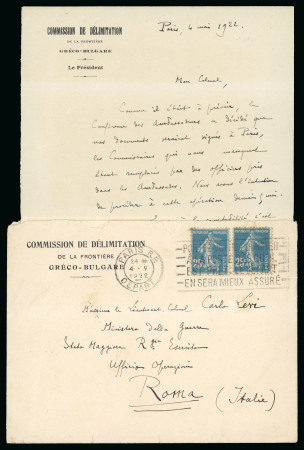 COMMISSION DE DÉLIMITATION
DE LA FRONTIÈRE
GRÉCO-BULGARE
Le Président
Paris, 4 mai 1922.
Mon Colonel,
Comme il était à prévoir, la
Conférence des Ambassadeurs a décidé que
nos documents seraient signés à Paris,
les Commissaires qui nous manquent
étant remplacés par des officiers pris
dans les Ambassades. Nous avons l'intention
de procéder à cette opération
COMMISSION DE DÉLIMITATION
DE LA FRONTIÈRE
GRÉCO-BULGARE
PARIS
4 - V
1922
DEPART
EN SERA MIEUX ASSURÉ
25
Monsieur le Lieutenant-Colonel Carlo Levi
Ministero della Guerra
Stato Maggiore R. Esercito
Ufficio Operazioni
Roma
(Italie)